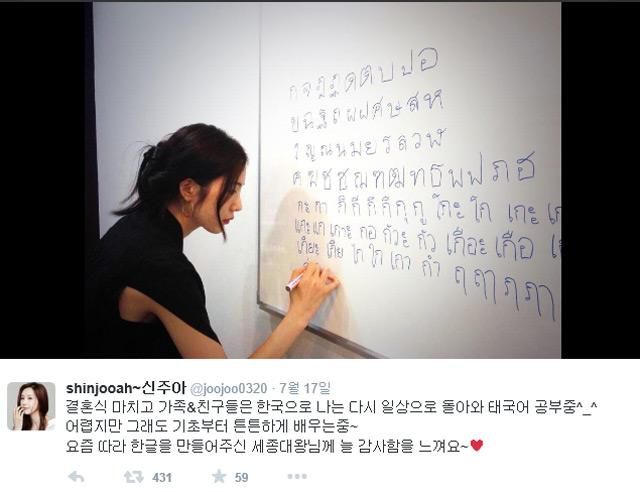 ก จ ฎ ฏ ด ต บ ป อ
ข ฉ ฐ ถ ผ ฝ ศ ษ ส ห
ง ญ ณ น ม ย ร ล ว ฬ
ค ฆ ช ซ ฌ ฑ ฒ ท ธ พ ฟ ภ ฮ
กะ กา กิ กี กึ กื กุ กู โกะ โก เกะ
แกะ แก เกาะ กอ กัวะ กัว เกือะ เกือ
เกียะ เกีย ไก ใก เกา กำ ฤ ฤๅ ฦ ฦๅ
shinjooah~신주아 @joojoo0320 · 7월 17일
결혼식 마치고 가족&친구들은 한국으로 나는 다시 일상으로 돌아와 태국어 공부중^_^
어렵지만 그래도 기초부터 튼튼하게 배우는중~
요즘 따라 한글을 만들어주신 세종대왕님께 늘 감사함을 느껴요~♥
431 59